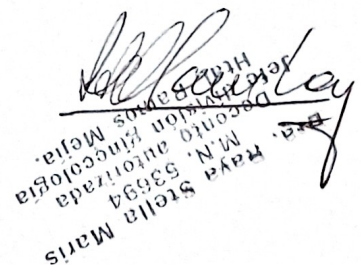 Dra. Raya Stella Maris
M.N. 53694
Deconto autorizada
Jefe División Ginecología
Htal. Ramos Mejía.